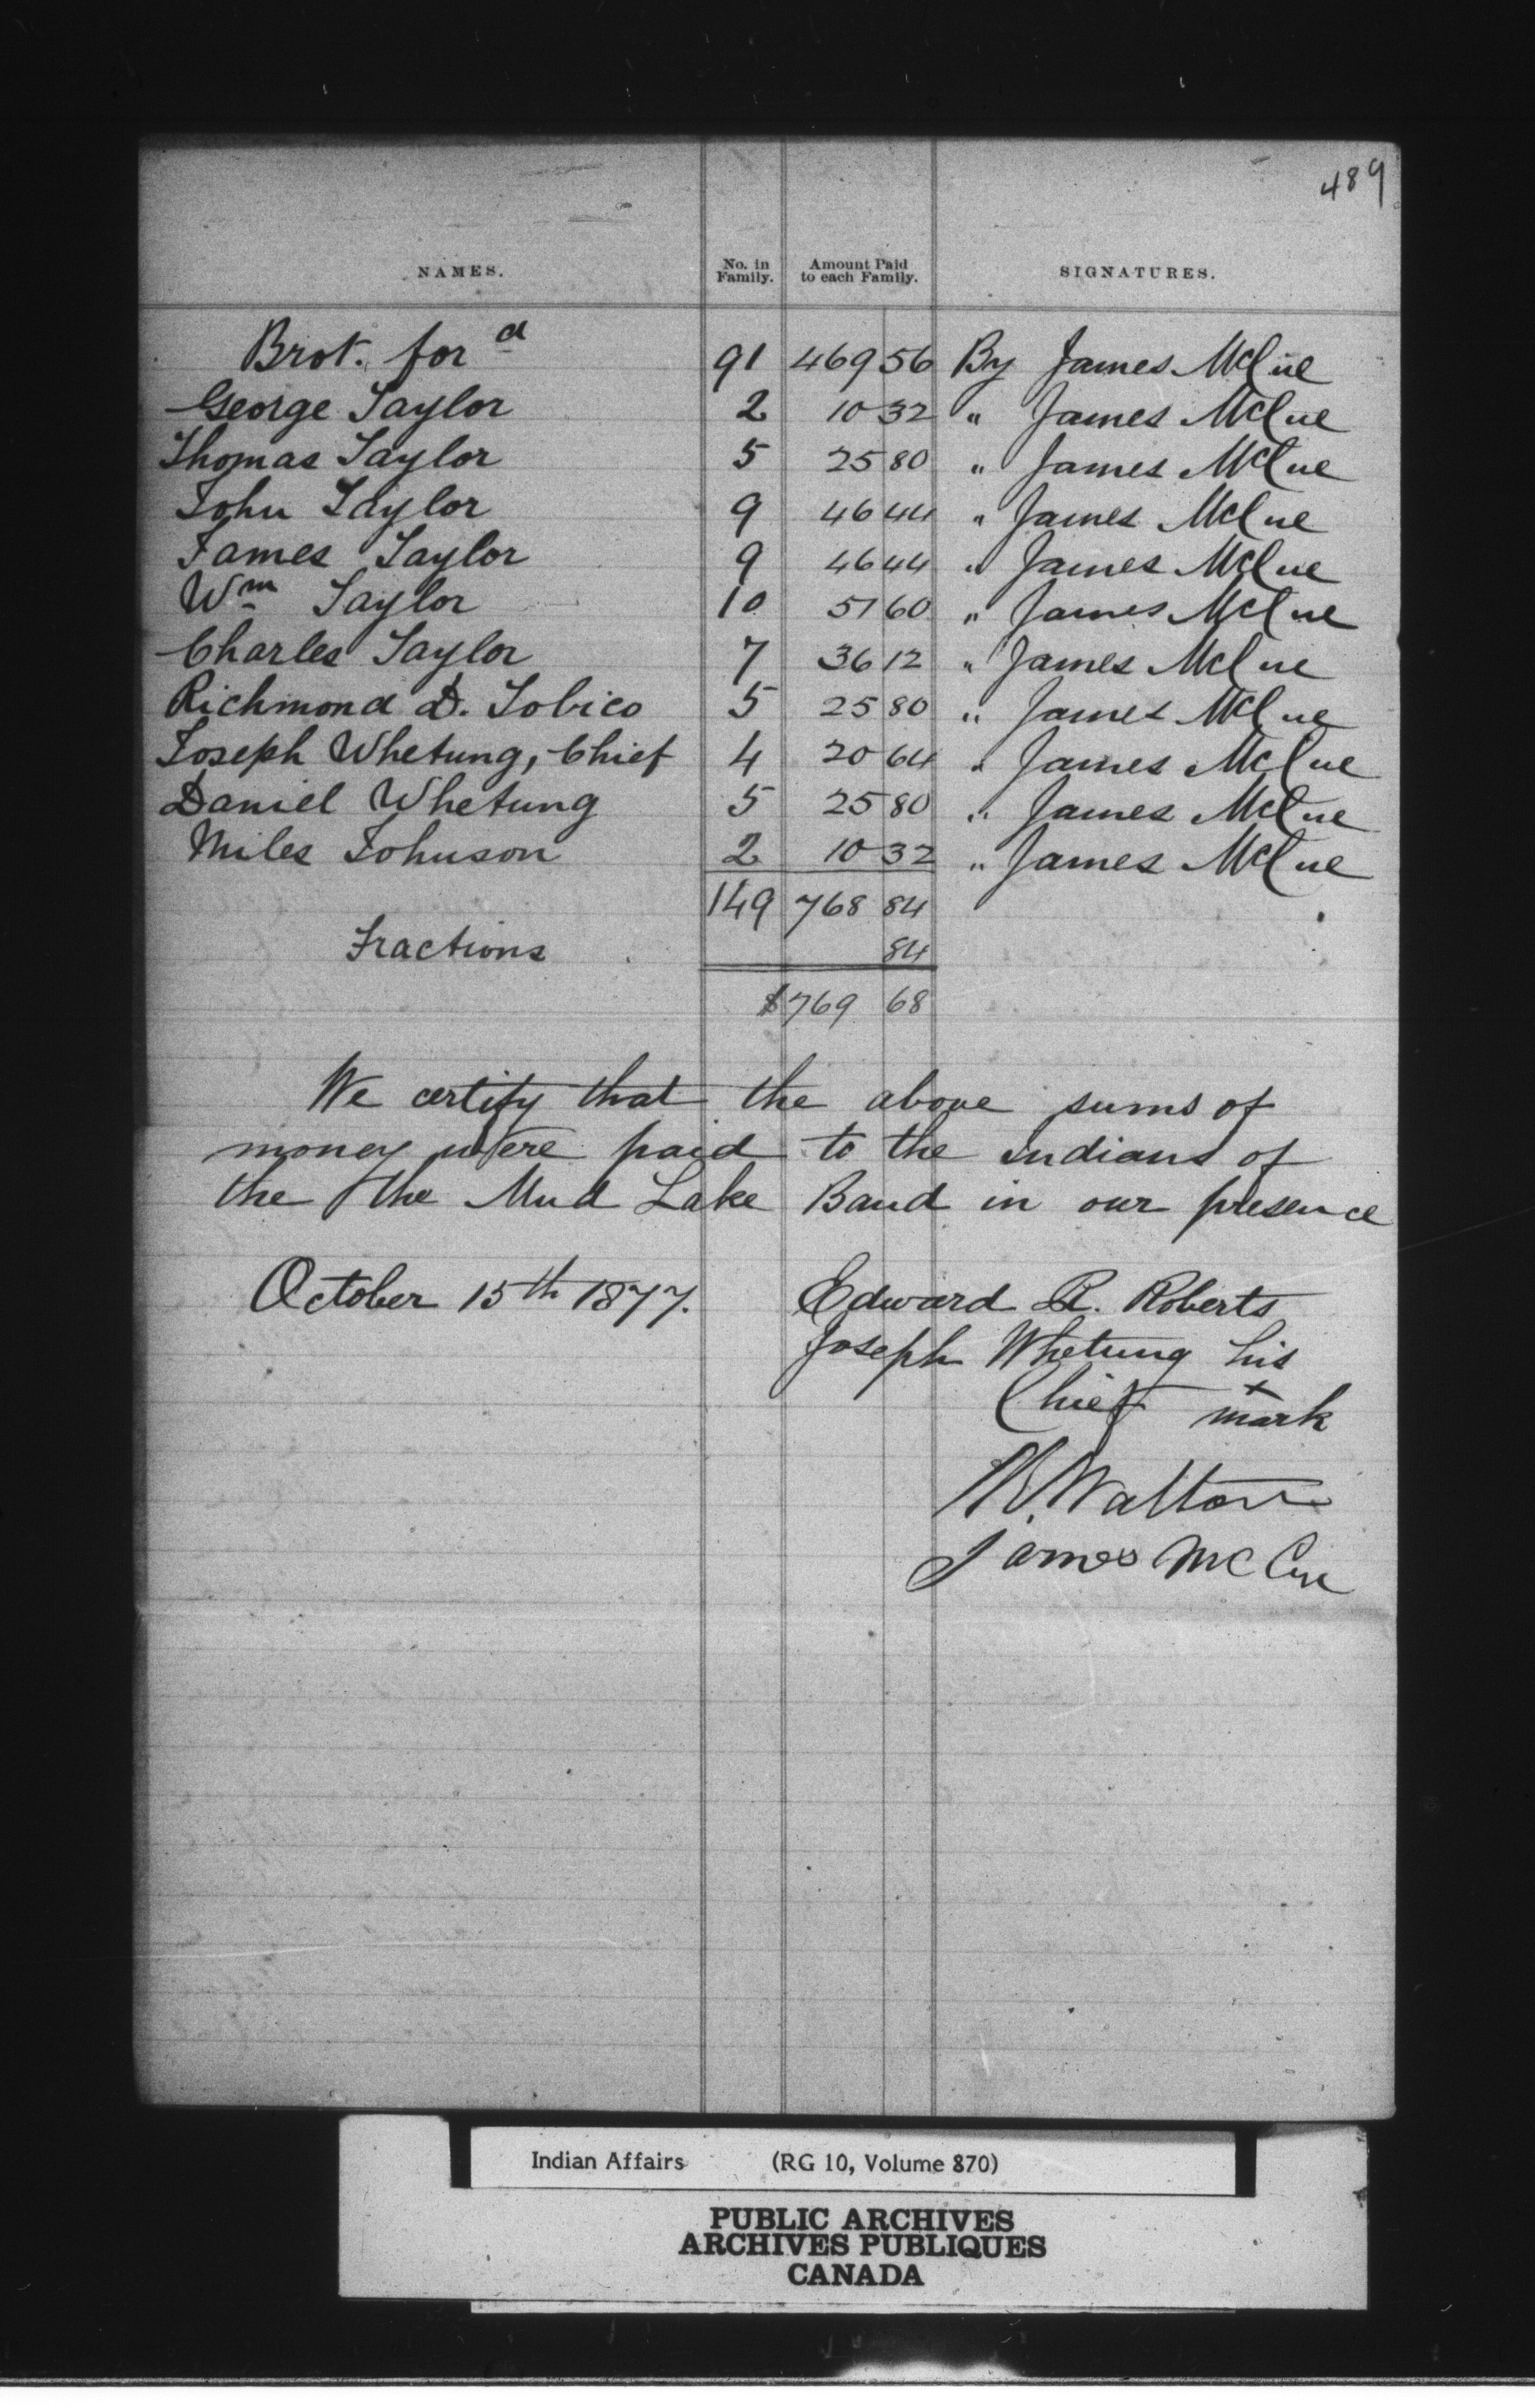 489
NAMES. No. in Family. Amount Paid to each Family. SIGNATURES.
Brot. for d 91 469 56 By James McCue
George Taylor 2 10 32 " James McCue
Thomas Taylor 5 25 80 " James McCue
John Taylor 9 46 44 " James McCue
James Taylor 9 46 44 " James McCue
Wm Taylor 10 51 60 " James McCue
Charles Taylor 7 36 12 " James McCue
Richmond D. Tobico 5 25 80 " James McCue
Joseph Whetung, Chief 4 20 64 " James McCue
Daniel Whetung 5 25 80 " James McCue
Miles Johnson 2 10 32 " James McCue
149 768 84
Fractions 84
$769 68
We certify that the above sums of
money were paid to the indians of
the the Mud Lake Band in our presence
October 15th 1877. Edward R. Roberts
Joseph Whetung his
Chief x mark
W. Walton
James McCue
Indian Affairs (RG 10, Volume 870)
PUBLIC ARCHIVES
ARCHIVES PUBLIQUES
CANADA